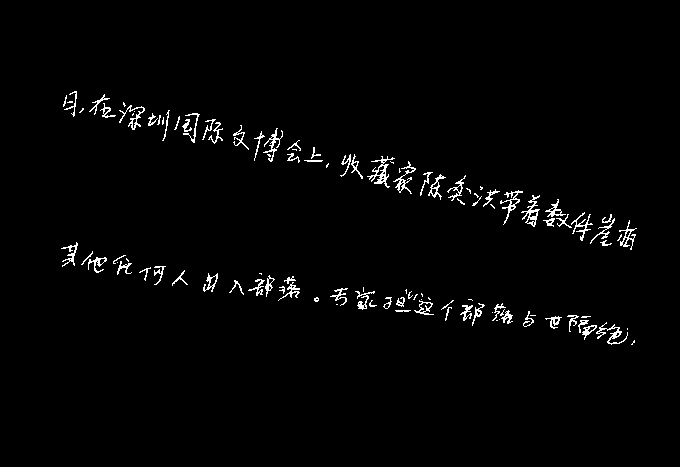 日,在深圳国际文博会上,收藏家陈奕洪带着数件崖柏
其他任何人出入部落。专家担心这个部落与世隔绝,